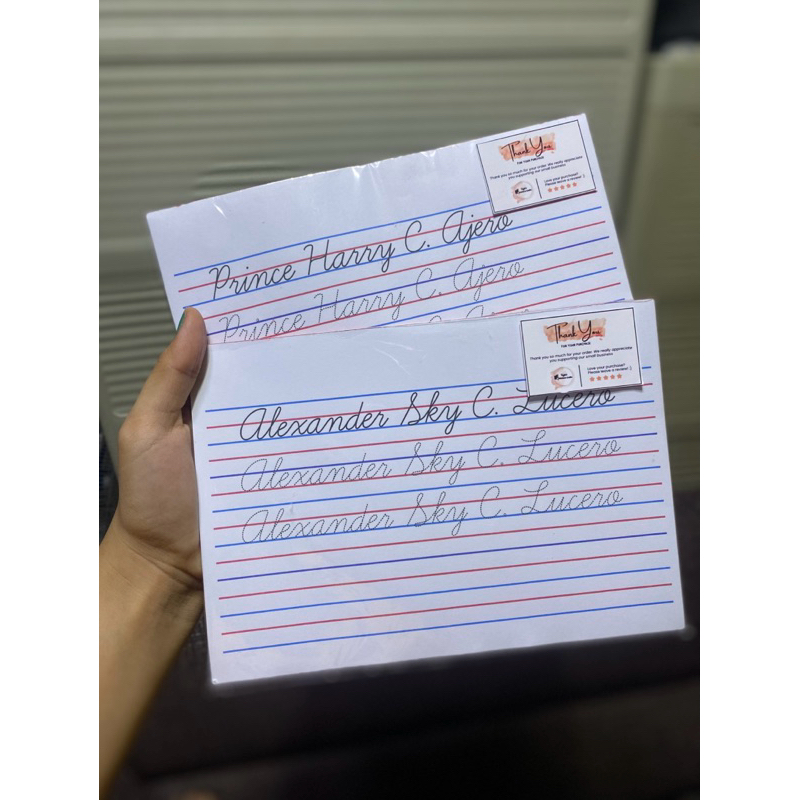 Thank You
FOR YOUR PURCHASE
Thank you so much for your order. We really appreciate
you supporting our small business
Love your purchase?
Please leave a review! :)
Prince Harry C. Ajero
Prince Harry C. Ajero
Thank You
FOR YOUR PURCHASE
Thank you so much for your order. We really appreciate
you supporting our small business
Love your purchase?
Please leave a review! :)
Alexander Sky C. Lucero
Alexander Sky C. Lucero
Alexander Sky C. Lucero